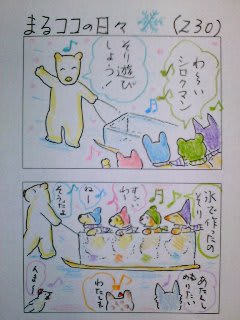 まるココの日々
(230)
わーい
シロクマン
そり遊び
しよう!
氷で作ったの
そり
すごい
わー
ねー
そうだよ
あたくしも
のりたい
わたしも